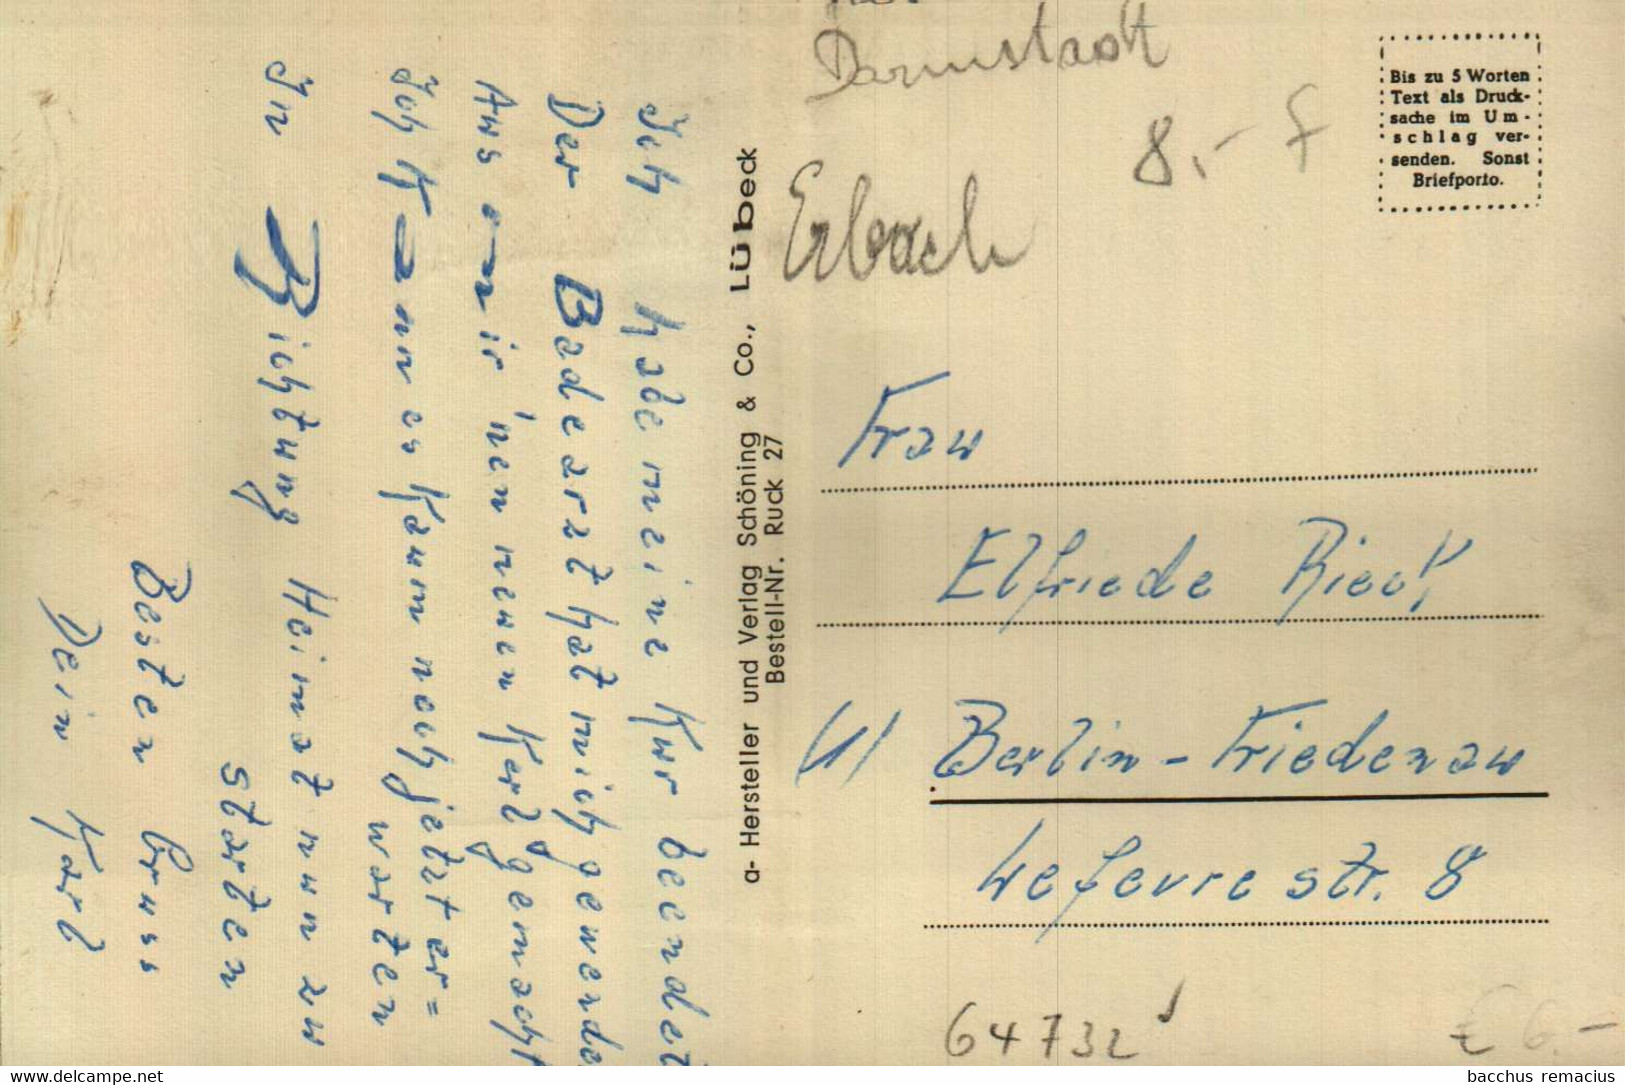 Darmstadt
Erbach
8,- f
Bis zu 5 Worten
Text als Druck-
sache im Um-
schlag ver-
senden. Sonst
Briefporto.
Ich habe meine Kur beendet
Der Badearzt hat mich gewendet
Aus mir 'nen neuen Kerl gemacht
Ich kann es kaum noch jetzt er=
warten
In Richtung Heimat nun zu
starten
Besten Gruss
Dein Karl
a- Hersteller und Verlag Schöning & Co., Lübeck
Bestell-Nr. Ruck 27
Frau
Elfriede Rieck
(1) Berlin-Friedenau
Lefevrestr. 8
64732
€ 6.-
bacchus-remacle.com
bacchus remacius